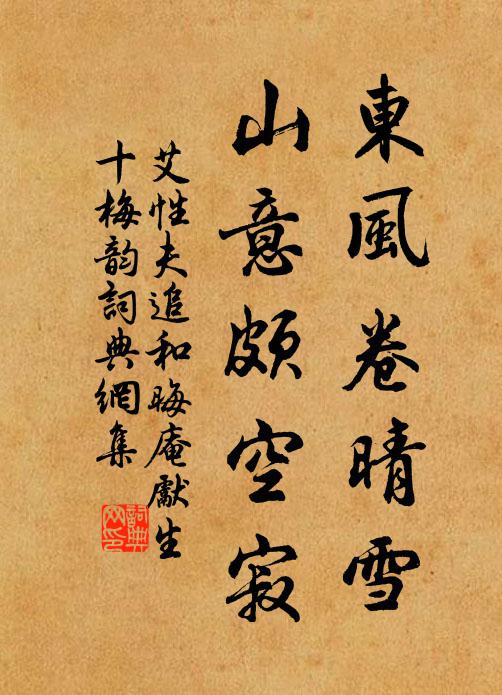 東風卷晴雪
山意頗空寂
艾性夫追和晦庵獻生
十梅韵詞典網集
詞典网印